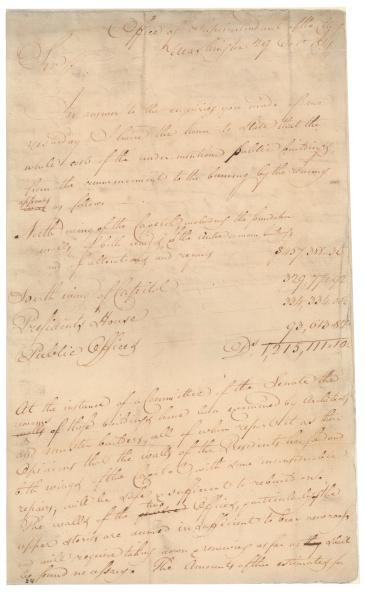 Office of Superintendent of the City
Washington 29 Oct 1814
Sir,
In answer to the enquiries you made of me
yesterday I have the honor to state that the
whole cost of the under mentioned public buildings
from the commencement to the burning by the enemy
was as follows
North wing of the Capitol, including the foundation
walls of both wings & the intermediate
and of alterations and repairs $457,388.36
South wing of Capitol 329,774.92
Presidents House 334,334.00
Public Offices 93,613.82
Ds 1,215,111.10
At the instance of a Committee of the Senate the
of these buildings have been examined by Architects
and master builders, all of whom report it as their
opinions that the walls of the Presidents house and
both wings of the Capitol with some inconsiderable
repairs, will be safe & sufficient to rebuild on.
The walls of the two Offices, particularly of the
upper stories are deemed insufficient to bear new roofs
and will require taking down & renewing as far as shall
be found necessary. The Amounts of the estimates for